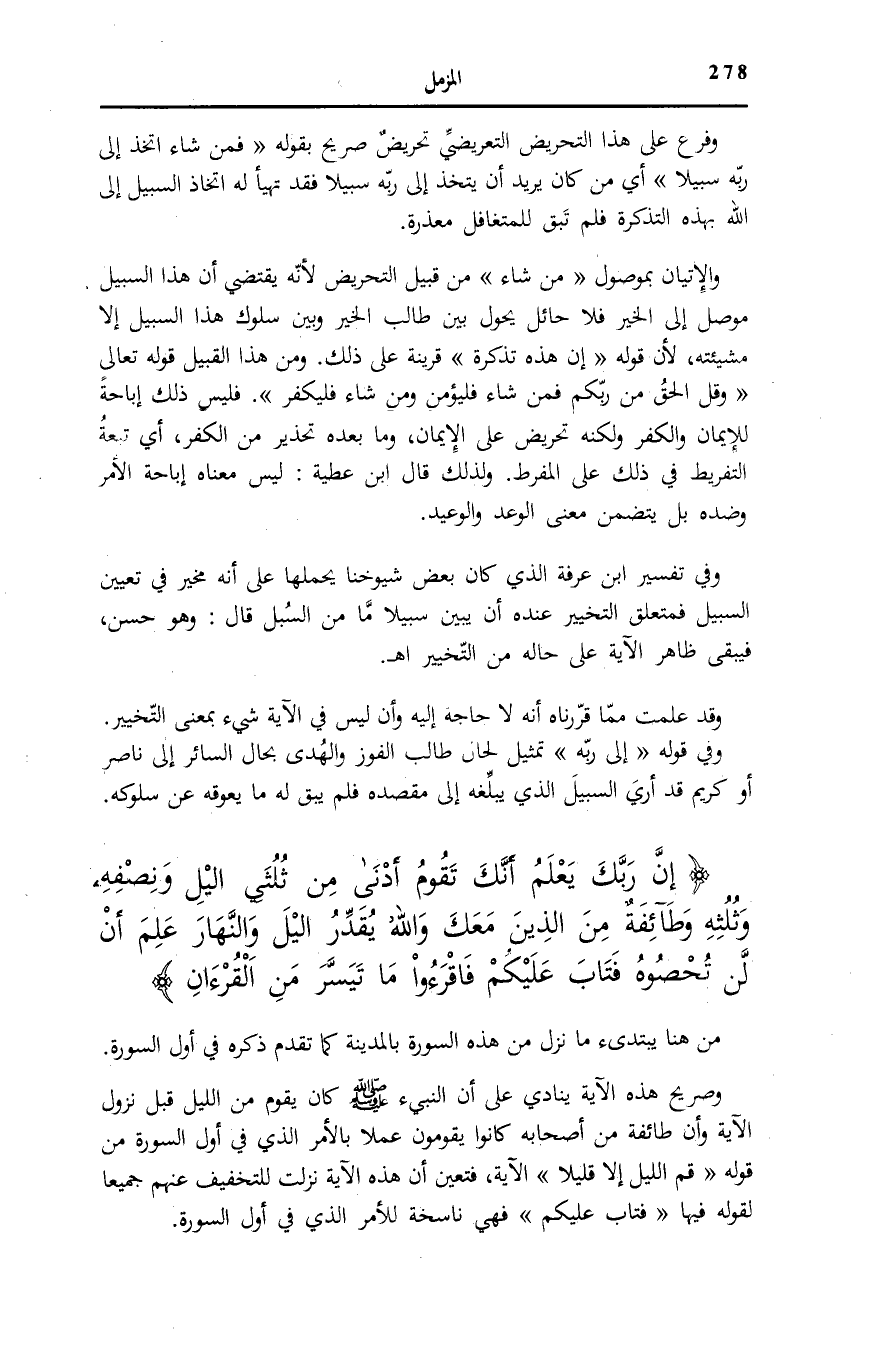 278
المزمل
وفرع على هذا التحريض التعريضيِّ تحريضٌ صريح بقوله « فمن شاء اتخذ إلى
ربّه سبيلا » أي من كان يريد أن يتخذ إلى ربّه سبيلا فقد تهيأ له اتخاذ السبيل إلى
الله بهذه التذكرة فلم تَبق للمتغافل معذرة.
والإِتيان بموصول « من شاء » من قبيل التحريض لأنّه يقتضي أن هذا السبيل
موصل إلى الخير فلا حائل يحول بين طالب الخير وبين سلوك هذا السبيل إلا
مشيئته، لأن قوله « إن هذه تذكرة » قرينة على ذلك. ومن هذا القبيل قوله تعالى
« وقل الحقُّ من ربّكم فمن شاء فليؤمن ومن شاء فليكفر ». فليس ذلك إباحةً
للإِيمان والكفر ولكنه تحريض على الإِيمان، وما بعده تحذير من الكفر، أي تبعةُ
التفريط في ذلك على المفرط. ولذلك قال ابن عطية : ليس معناه إباحة الأمر
وضده بل يتضمن معنى الوعد والوعيد.
وفي تفسير ابن عرفة الذي كان بعض شيوخنا يحملها على أنه مخير في تعيين
السبيل فمتعلق التخيير عنده أن يبين سبيلا مَّا من السُبل قال : وهو حسن،
فيبقى ظاهر الآية على حاله من التّخيير اهـ.
وقد علمت ممّا قرّرناه أنه لا حاجة إليه وأن ليس في الآية شيء بمعنى التّخيير.
وفي قوله « إلى ربّه » تمثيل لحال طالب الفوز والهُدى بحال السائر إلى ناصر
أو كريم قد أريَ السبيلَ الذي يبلِّغه إلى مقصده فلم يبق له ما يعوقه عن سلوكه.
﴿ إِنَّ رَبَّكَ يَعْلَمُ أَنَّكَ تَقُومُ أَدْنَىٰ مِن ثُلُثَيِ اليْلِ وَنِصْفِهِۦ
وَثُلُثِهِ وَطَآئِفَةٌ مِنَ الذِينَ مَعَكَ وَاللهُ يُقَدِّرُ اليْلَ وَالنَّهَارَ عَلِمَ أَنْ
لَّن تُحْصُوهُ فَتَابَ عَلَيْكُمْ فَاقْرَءُواْ مَا تَيَسَّرَ مَنِ اَلْقُرْءَانِ ﴾
من هنا يبتدىء ما نزل من هذه السورة بالمدينة كما تقدم ذكره في أول السورة.
وصريح هذه الآية ينادي على أن النبيء ﷺ كان يقوم من الليل قبل نزول
الآية وأن طائفة من أصحابه كانوا يقومون عملا بالأمر الذي في أول السورة من
قوله « قم الليل إلا قليلا » الآية، فتعين أن هذه الآية نزلت للتخفيف عنهم جميعا
لقوله فيها « فتاب عليكم » فهي ناسخة للأمر الذي في أول السورة.